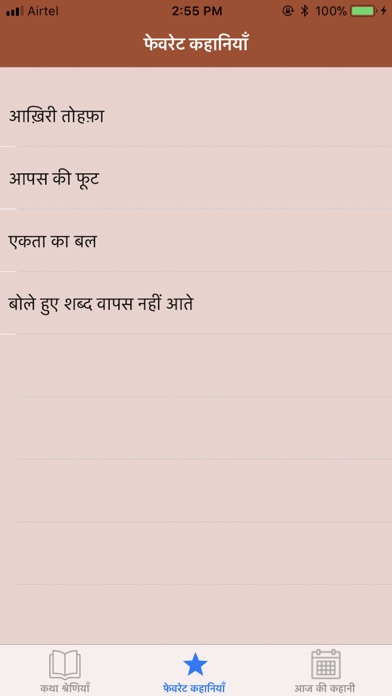 Airtel 2:55 PM 100%
फेवरेट कहानियाँ
आख़िरी तोहफ़ा
आपस की फूट
एकता का बल
बोले हुए शब्द वापस नहीं आते
कथा श्रेणियाँ फेवरेट कहानियाँ आज की कहानी